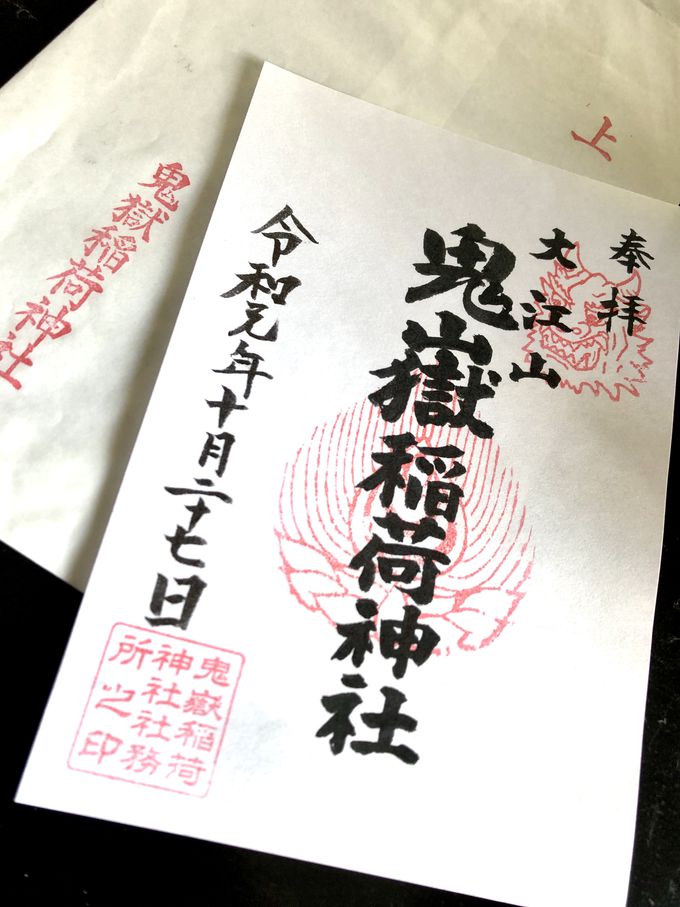 上
奉拝
大江山
鬼嶽稲荷神社
令和元年十月二十七日
鬼嶽稲荷
神社社務
所之印
鬼嶽稲荷神社